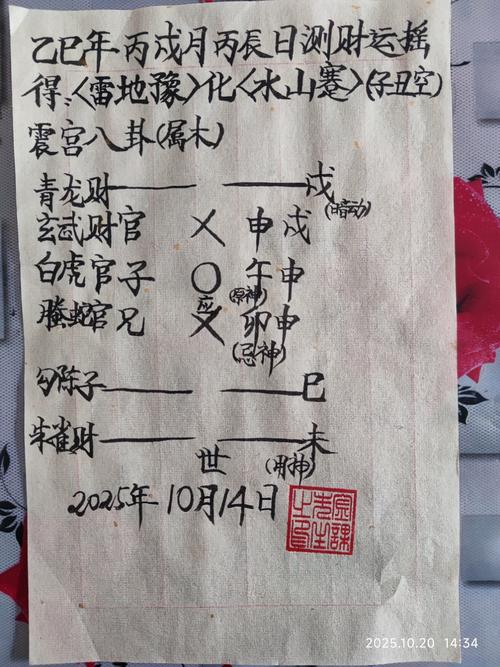 乙巳年丙戌月丙辰日测财运摇
得:〈雷地豫〉化〈水山蹇〉(子丑空)
震宫八卦(属木)
青龙财 戌
(暗动)
玄武财官 X 申戌
白虎官子 〇 午申
(原神)
应
螣蛇官兄 X 卯申
(忌神)
勾陈子 巳
朱雀财 未
世 (用神)
2025年10月14日
2025.10.20 14:34